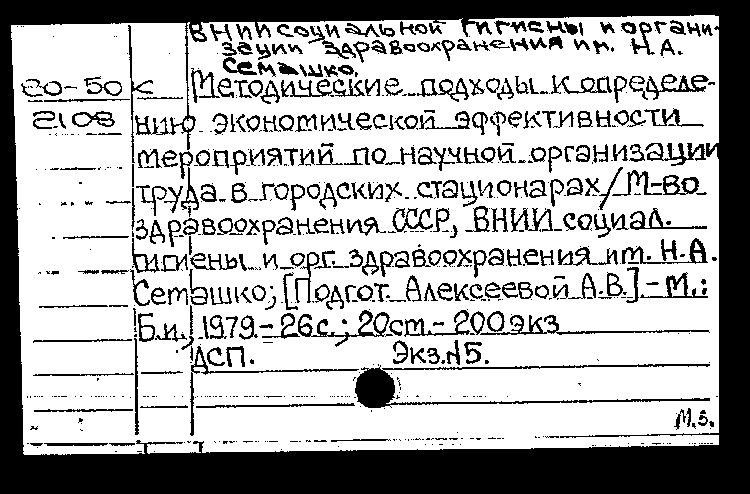 ВНИИ социальной гигиены и органи-
зации здравоохранения им. Н.А.
Семашко.
80-50 < Методические подходы к определе-
2108 нию экономической эффективности
мероприятий по научной организации
труда в городских стационарах/М-во
здравоохранения СССР, ВНИИ социал.
гигиены и орг. здравоохранения им. Н.А.
Семашко; [Подгот. Алексеевой А.В.].-М.:
Б.и., 1979.-26с.; 20см.-200экз
ДСП. Экз.№5.
М.б.